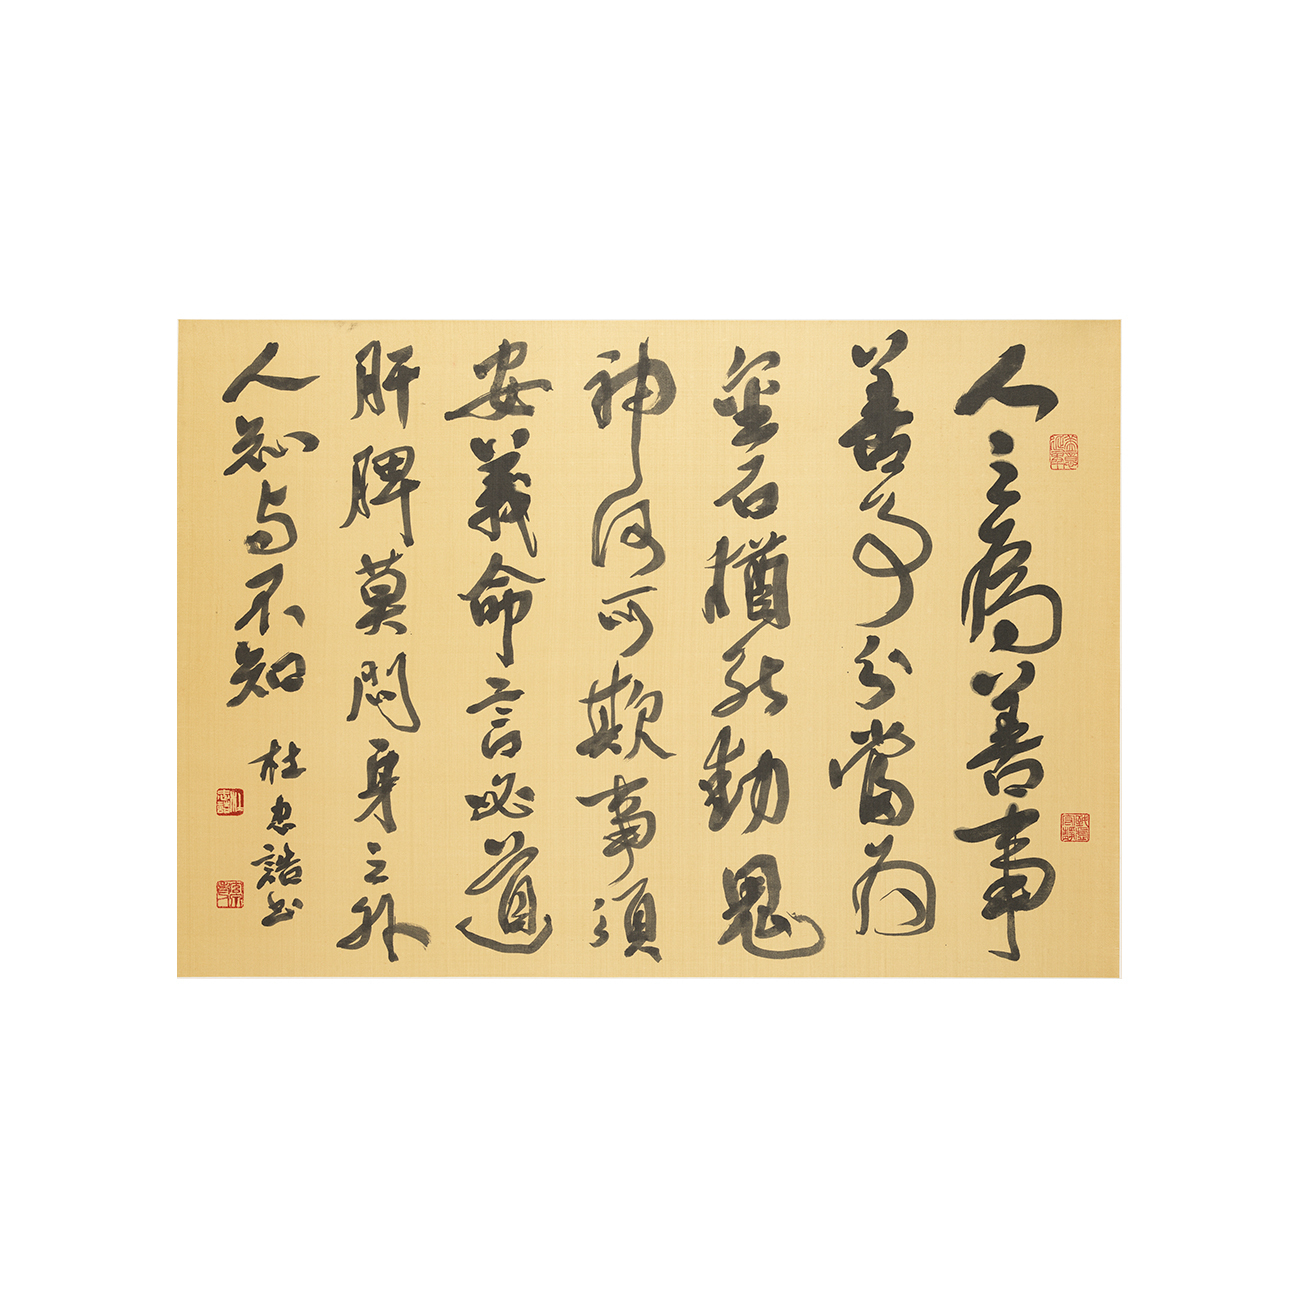 人之為善事
善事分當為
金石猶能動鬼
神何可欺事須
安義命言必道
肝脾莫問身之外
人知与不知 杜忠誥書